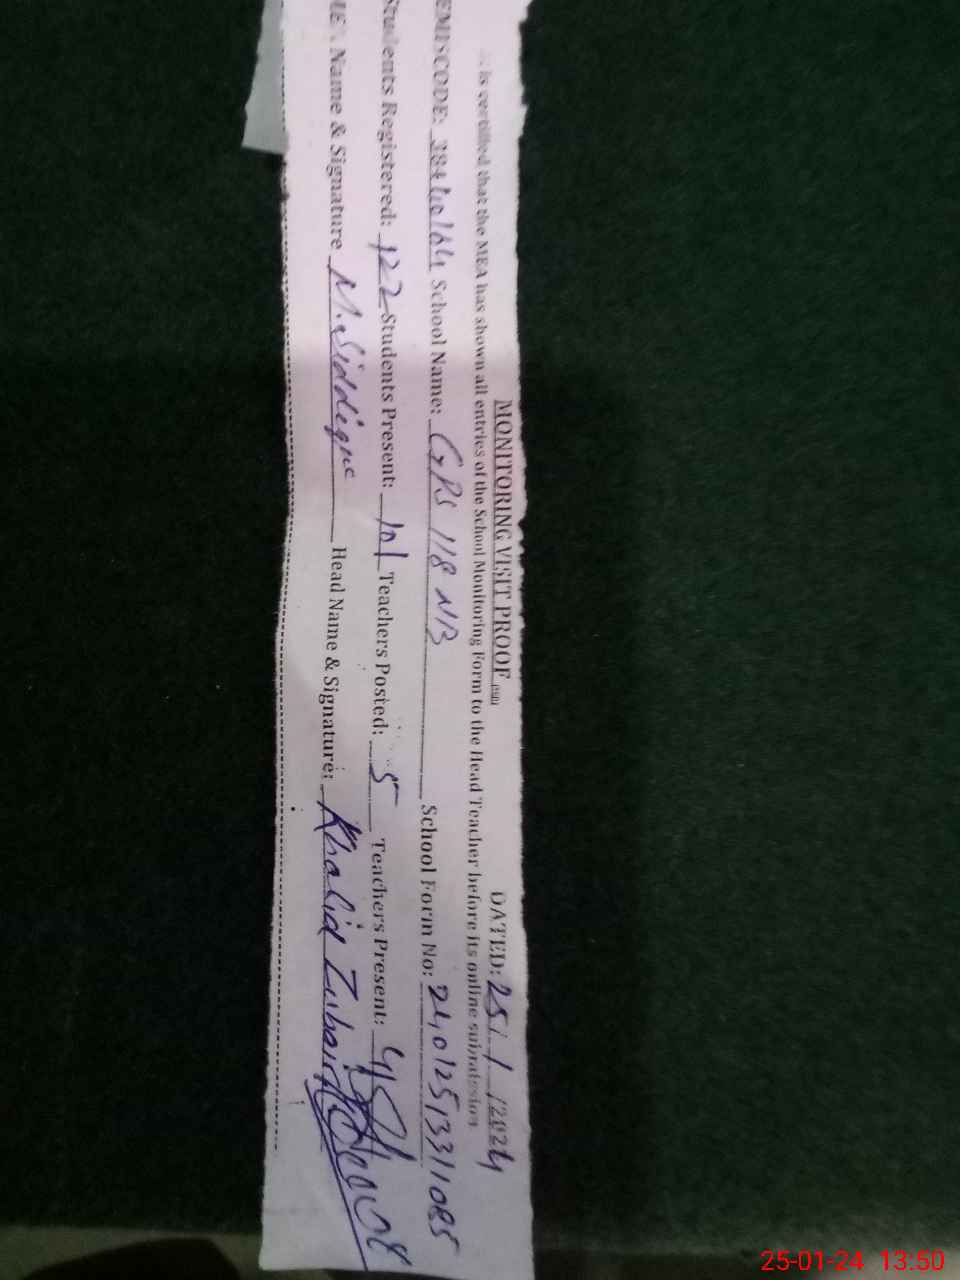 MONITORING VISIT PROOF DATED: 25/1/2024
is certified that the MEA has shown all entries of the School Monitoring Form to the Head Teacher before its online submission
EMISCODE: 38440164 School Name: GPS 118 NB School Form No: 24012513311085
Students Registered: 122 Students Present: 101 Teachers Posted: 5 Teachers Present: 4
Name & Signature M. Siddique Head Name & Signature: Khalid Zubair
25-01-24 13:50